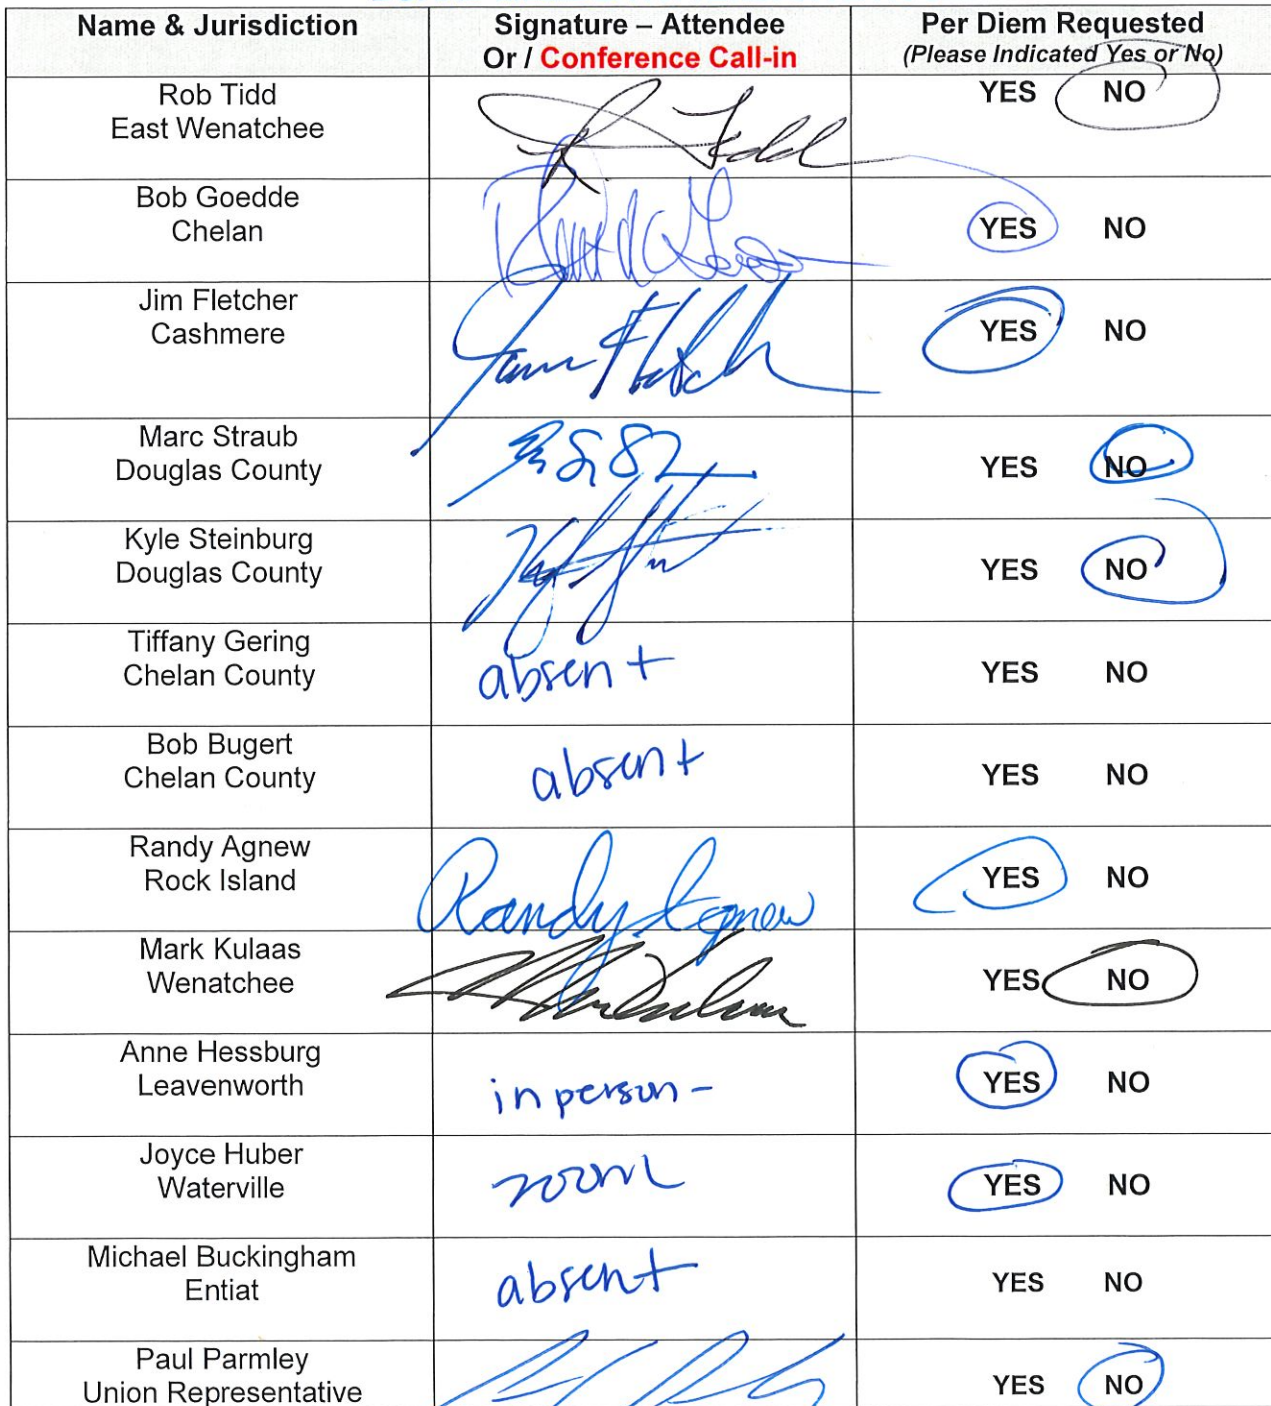 Name & Jurisdiction
Signature – Attendee
Or / Conference Call-in
Per Diem Requested
(Please Indicated Yes or No)
Rob Tidd
East Wenatchee
YES NO
Bob Goedde
Chelan
YES NO
Jim Fletcher
Cashmere
YES NO
Marc Straub
Douglas County
YES NO
Kyle Steinburg
Douglas County
YES NO
Tiffany Gering
Chelan County
absent
YES NO
Bob Bugert
Chelan County
absent
YES NO
Randy Agnew
Rock Island
Randy Agnew
YES NO
Mark Kulaas
Wenatchee
YES NO
Anne Hessburg
Leavenworth
in person -
YES NO
Joyce Huber
Waterville
zoom
YES NO
Michael Buckingham
Entiat
absent
YES NO
Paul Parmley
Union Representative
YES NO